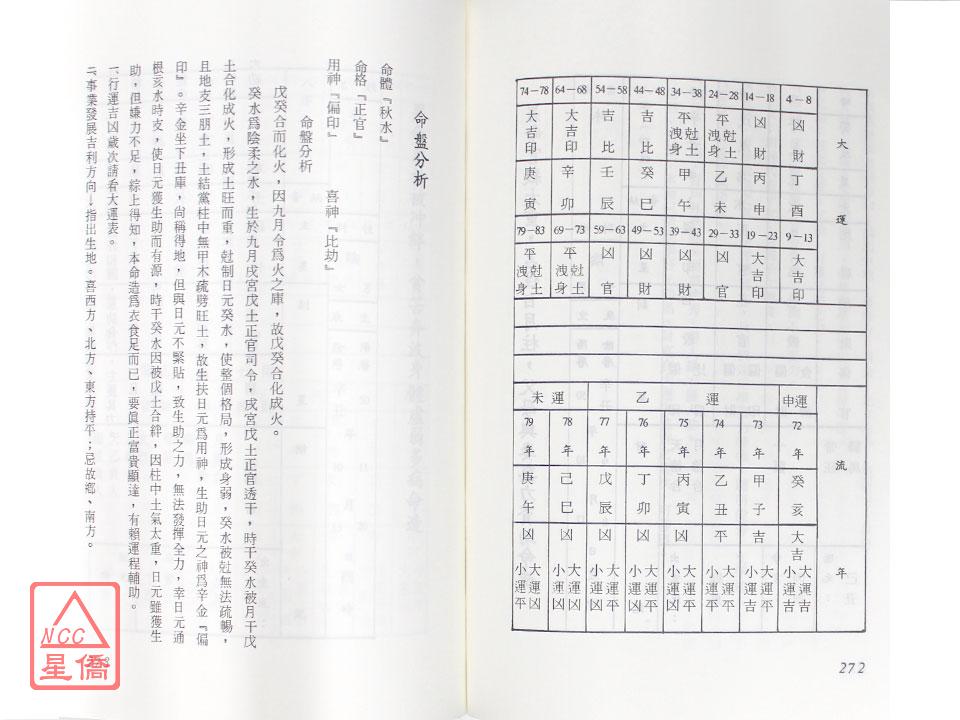 大運
4－8 凶財 丁酉 9－13 大吉印
14－18 凶財 丙申 19－23 大吉印
24－28 平尅土洩身 乙未 29－33 凶官
34－38 平尅土洩身 甲午 39－43 凶財
44－48 吉比 癸巳 49－53 凶財
54－58 吉比 壬辰 59－63 凶官
64－68 大吉印 辛卯 69－73 平尅土洩身
74－78 大吉印 庚寅 79－83 平尅土洩身
流年
申運
72年 癸亥 大吉 大運吉 小運吉
乙運
73年 甲子 吉 大運平 小運吉
74年 乙丑 平 大運平 小運平
75年 丙寅 凶 大運平 小運凶
76年 丁卯 凶 大運平 小運凶
77年 戊辰 凶 大運平 小運凶
未運
78年 己巳 凶 大運凶 小運凶
79年 庚午 凶 大運凶 小運平
272
命盤分析
命體『秋水』
命格『正官』
用神『偏印』 喜神『比劫』
命盤分析
戊癸合而化火，因九月令為火之庫，故戊癸合化成火。
癸水為陰柔之水，生於九月戌宮戊土正官司令，戌宮戊土正官透干，時干癸水被月干戊
土合化成火，形成土旺而重，尅制日元癸水，使整個格局，形成身弱，癸水被尅無法疏暢，
且地支三朋土，土結黨柱中無甲木疏劈旺土，故生扶日元為用神，生助日元之神為辛金『偏
印』。辛金坐下丑庫，尚稱得地，但與日元不緊貼，致生助之力，無法發揮全力，幸日元通
根亥水時支，使日元獲生助而有源，時干癸水因被戊土合絆，因柱中土氣太重，日元雖獲生
助，但嫌力不足，綜上得知，本命造為衣食足而已，要真正富貴顯達，有賴運程輔助。
一、行運吉凶歲次請看大運表。
二、事業發展吉利方向→指出生地。喜西方、北方、東方持平；忌故鄉、南方。
NCC
星僑